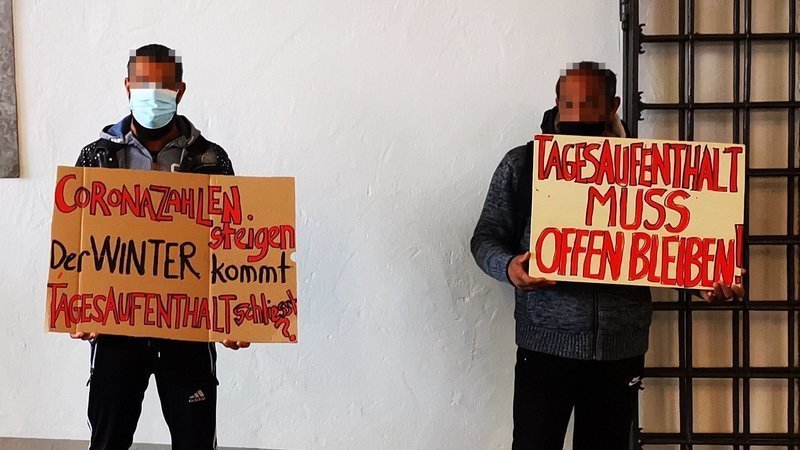 CORONAZAHLEN steigen
Der WINTER kommt
TAGESAUFENTHALT schliesst?
TAGESAUFENTHALT
MUSS
OFFEN BLEIBEN!
adidas